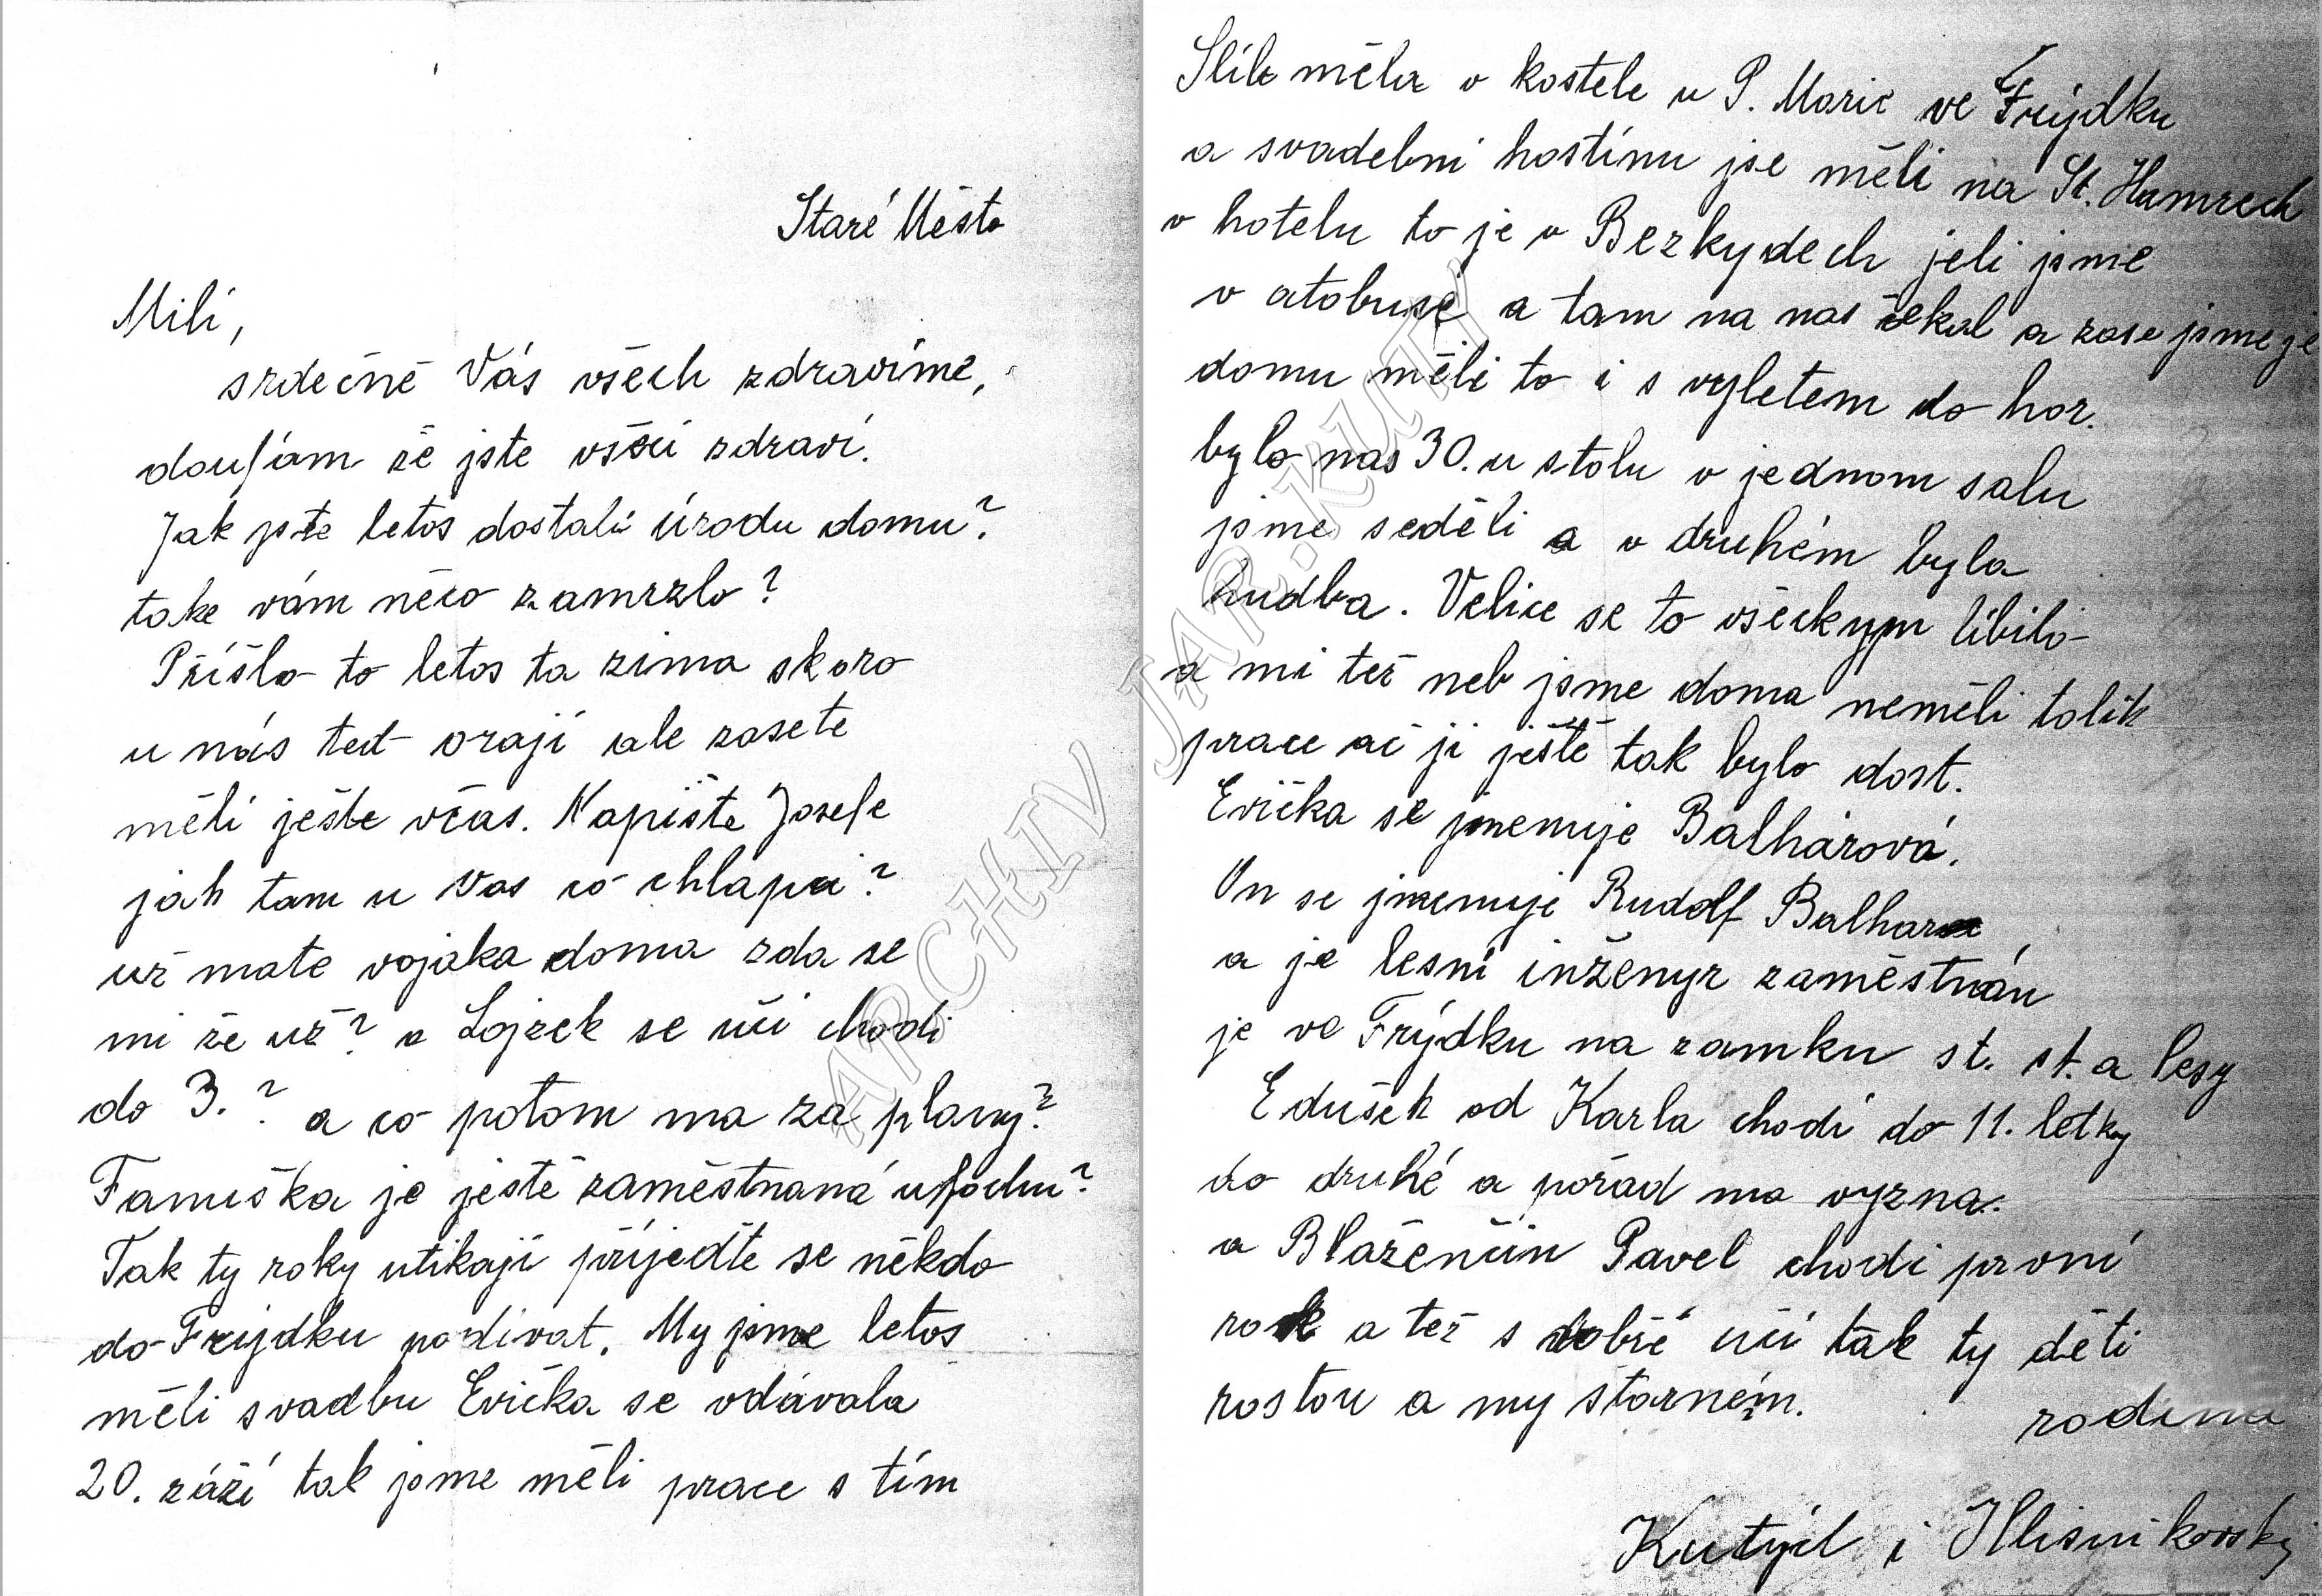 Staré Město
Milí,
srdečně Vás všech zdravíme,
doufám že jste všeci zdraví.
Jak jste letos dostali úrodu domu?
take vám něco zamrzlo?
Přišlo to letos ta zima skoro
u nás teď orají ale zasete
měli ješte včas. Napište Josefe
jak tam u Vas co chlapci?
už mate vojaka doma zda se
mi že už? a Lojzek se učí chodi
do 3.? a co potom ma za plany?
Fanuška je ještě zaměstnaná u
Tak ty roky utikají přijeďte se někdo
do Frýdku podivat. My jsme letos
měli svadbu Evička se vdávala
20. září tak jsme měli prace s tím
Slib měla v kostele u P. Marie ve Frýdku
a svadebni hostinu jse měli na St. Hamrech
v hotelu to je v Bezkydech jeli jsme
v atobuse a tam na nas čekal a zase jsme
domu měli to i s vyletem do hor.
bylo nas 30. u stolu v jednom salu
jsme seděli a v druhém byla
hudba. Velice se to všeckym líbilo
a mi tež neb jsme doma neměli tolik
prace ač ji ještě tak bylo dost.
Evička se jmenuje Balhárová.
On se jmenuje Rudolf Balhar
a je lesní inženyr zaměstnán
je ve Frýdku na zamku st. st. a lesy
Edušek od Karla chodí do 11. letky
do druhé a pořad ma vyzna.
a Blaženčin Pavel chodi první
rok a tež s dobře učí tak ty děti
rostou a my stárném.
rodina
Kutýd i Hlisnikovsky
ARCHIV JAR. KUTY